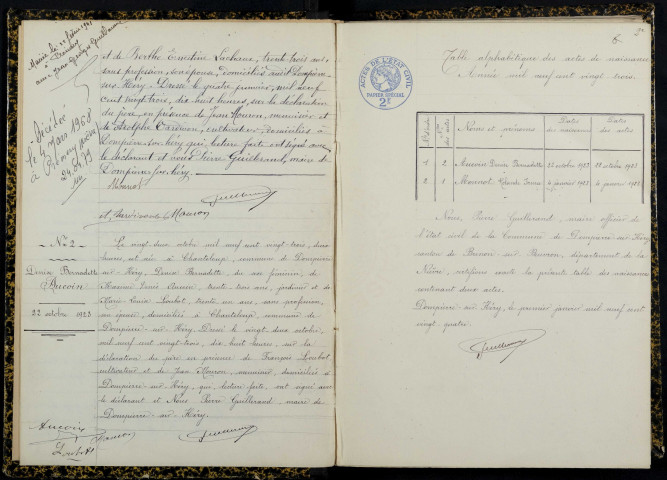 et de Berthe Ernestine, trente trois ans
sans profession, son épouse, domiciliés audit Dompierre
sur Héry. Dressé le quatre janvier, mil neuf
cent vingt trois, dix huit heures, sur la déclaration
du père, en présence de Jean Mouron, meunier et
de Adolphe, cultivateur, domiciliés à
Dompierre-sur-Héry qui, lecture faite, ont signé avec
le déclarant et nous Pierre Guillerand, maire de
Dompierre-sur-Héry.
Guillerand
Mouron
Décédé
le 7 Mars 1968
à
N° 2
Denise Bernadette
Aucoin
22 octobre 1923
Le vingt deux octobre mil neuf cent vingt trois, deux
heures, est née à Chanteloup, commune de Dompierre
sur Héry, Denise Bernadette du sexe féminin, de
Maxime Louis Aucoin, trente trois ans, jardinier et de
Marie Louise Loubat, trente un ans, sans profession,
son épouse, domiciliés à Chanteloup, commune de
Dompierre sur Héry. Dressé le vingt deux octobre,
mil neuf cent vingt trois, dix huit heures, sur la
déclaration du père en présence de François Loubat
cultivateur et de Jean Mouron, meunier, domiciliés à
Dompierre sur Héry, qui, lecture faite, ont signé avec
le déclarant et Nous Pierre Guillerand, maire de
Dompierre sur Héry.
Aucoin
Mouron
Loubat
Guillerand
ACTES DE L'ETAT CIVIL
PAPIER SPÉCIAL
2F
6
Table alphabétique des actes de naissance
Année mil neuf cent vingt trois.
Noms et prénoms
Dates des naissances
Dates des actes
1 2 Aucoin Denise Bernadette 22 octobre 1923 22 octobre 1923
2 1 4 janvier 1923 4 janvier 1923
Nous, Pierre Guillerand, maire officier de
l'état civil de la Commune de Dompierre-sur-Héry
canton de Brinon sur Beuvron, département de la
Nièvre, certifions exacte la présente table des naissances
contenant deux actes.
Dompierre sur Héry, le premier janvier mil neuf cent
vingt quatre.
Guillerand